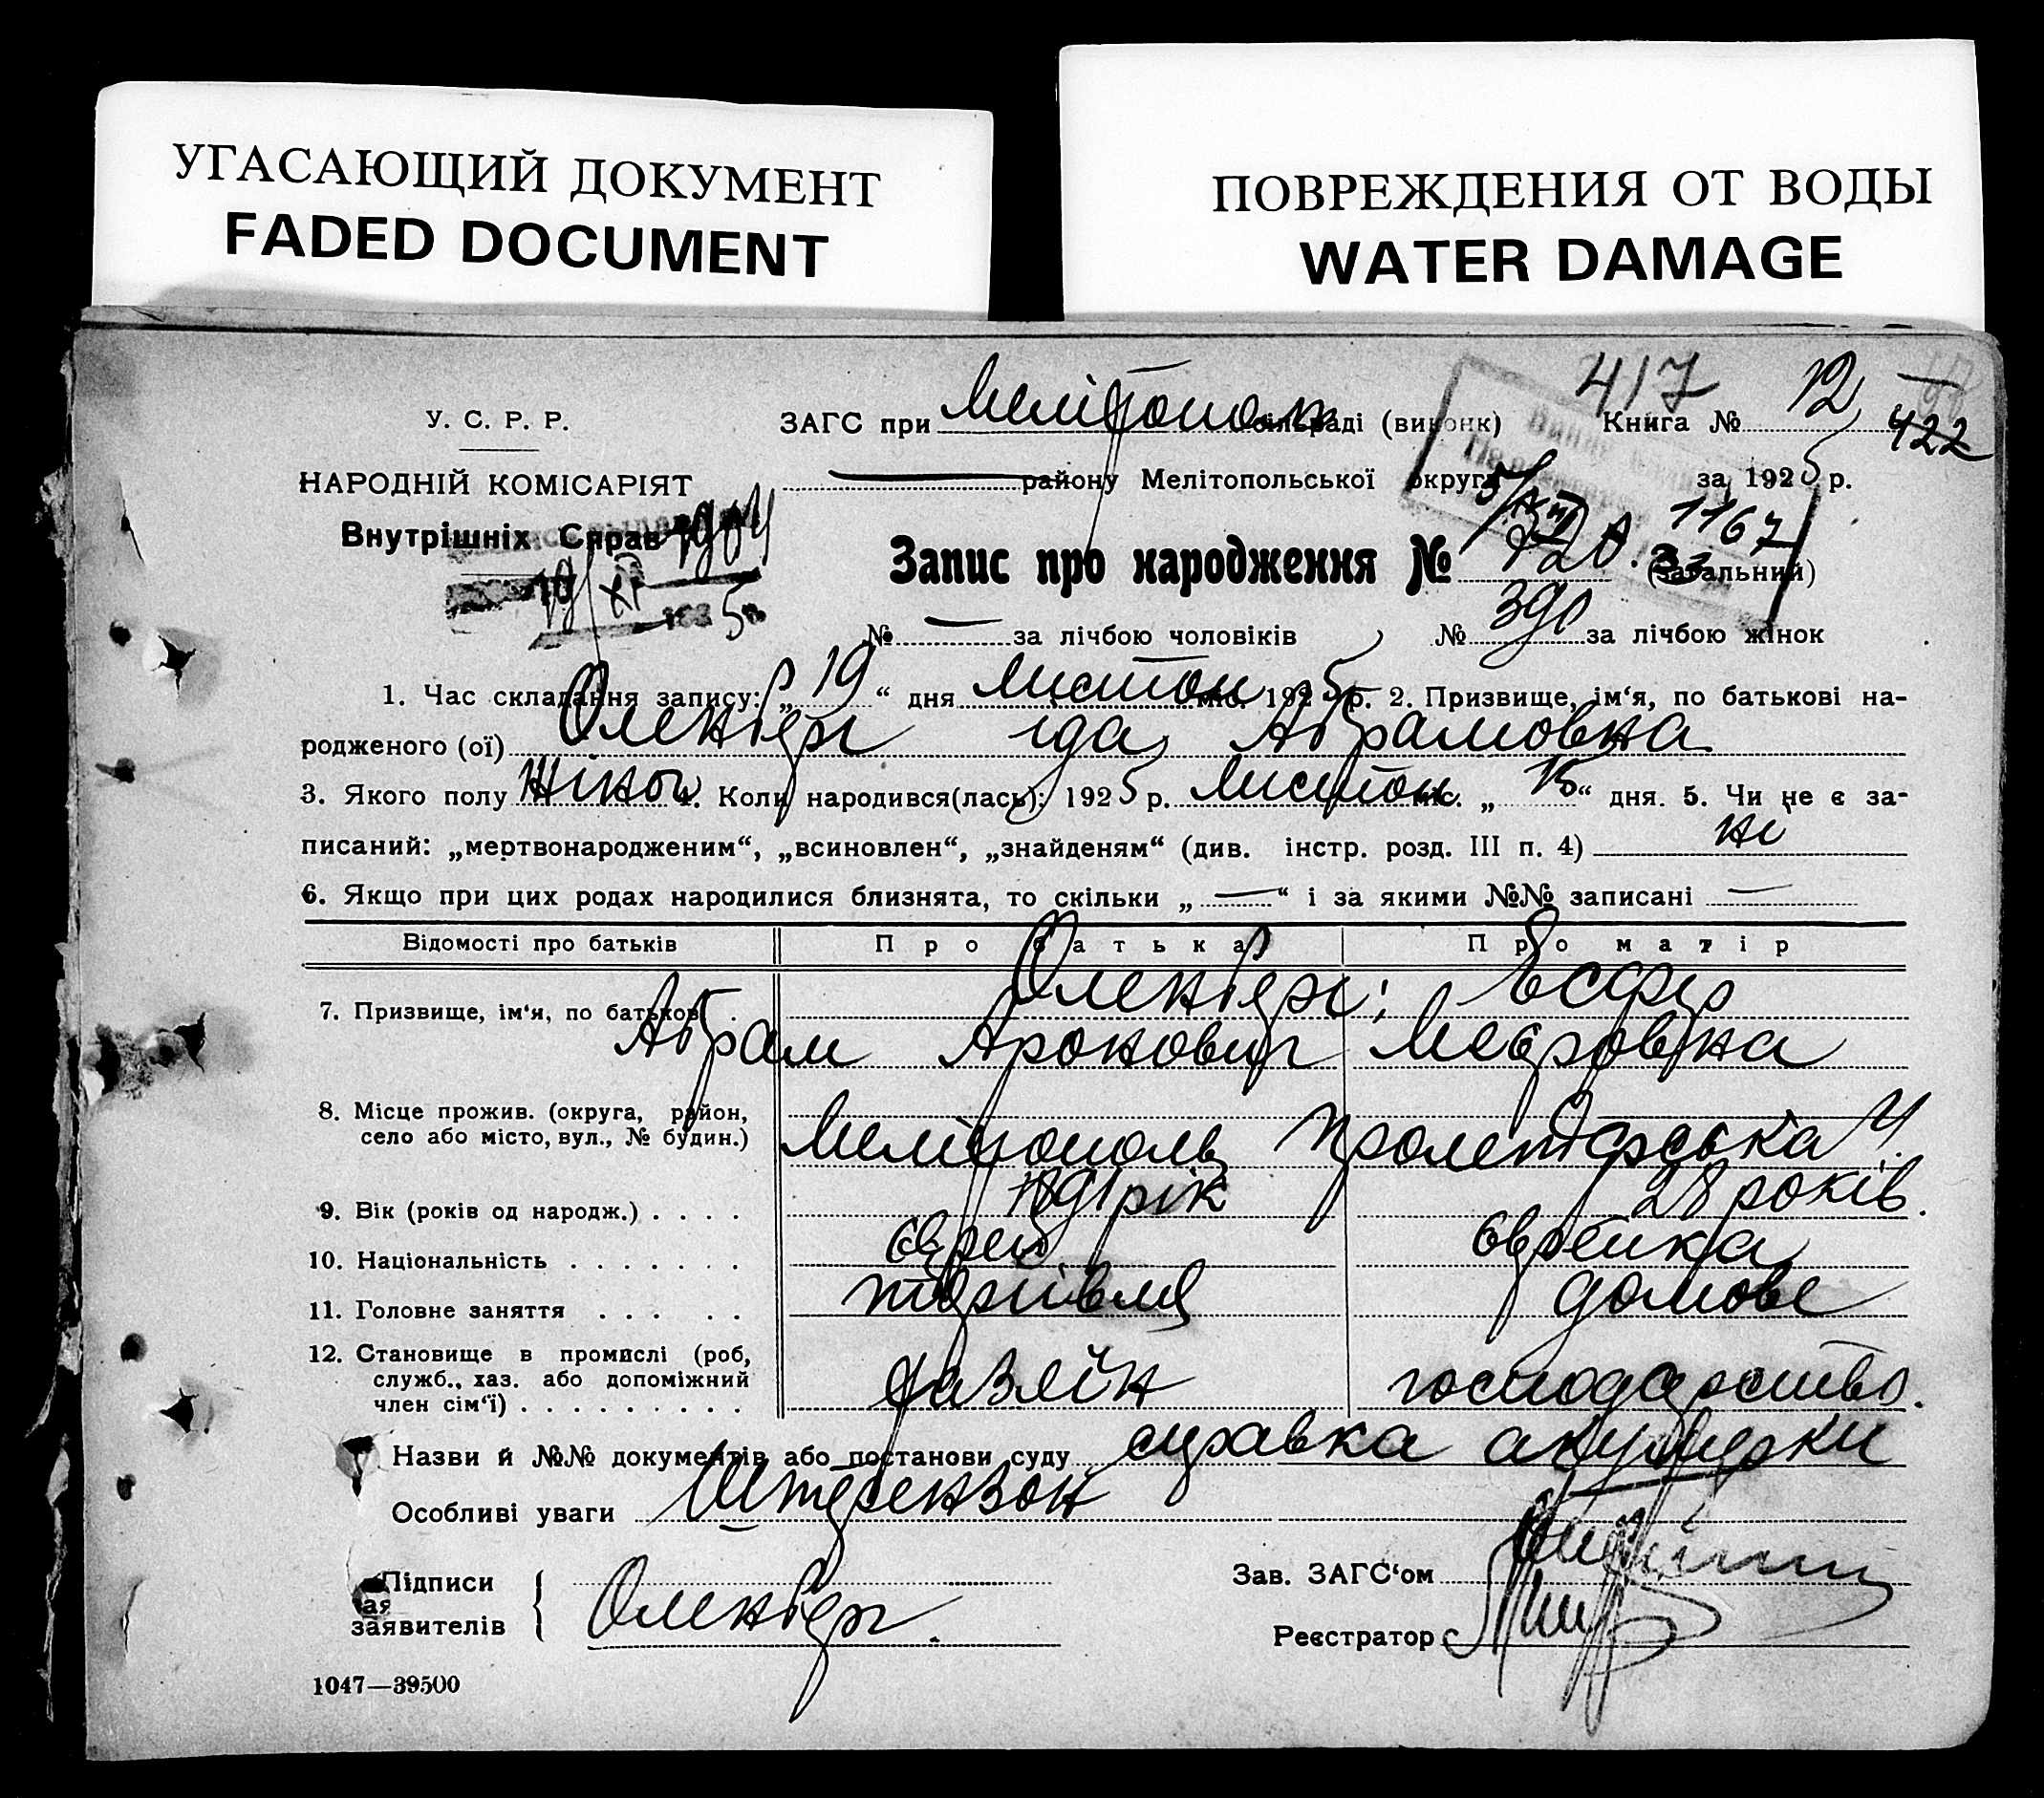 УГАСАЮЩИЙ ДОКУМЕНТ
FADED DOCUMENT
ПОВРЕЖДЕНИЯ ОТ ВОДЫ
WATER DAMAGE
417
У. С. Р. Р. ЗАГС при Мелітополь сільраді (виконк) Книга № 12 422
НАРОДНІЙ КОМІСАРІЯТ
району Мелітопольської округи за 1925 р.
Внутрішніх Справ 1904
19/XI 1925 р.
1167
Запис про народження № 720. (загальний)
№ — за лічбою чоловіків № 390 за лічбою жінок
1. Час складання запису: „19“ дня листоп міс. 1925 р. 2. Призвище, ім‘я, по батькові на-
родженого (ої) Оленберг Іда Абрамовна
3. Якого полу жіноч 4. Коли народився(лась): 1925 р. листоп міс. „15“ дня. 5. Чи не є за-
писаний: „мертвонародженим“, „всиновлен“, „знайденям“ (див. інстр. розд. III п. 4) ні
6. Якщо при цих родах народилися близнята, то скільки „—“ і за якими №№ записані —
Відомості про батьків Про батька Про матір
7. Призвище, ім‘я, по батькові Оленберг; Есфір
Абрам Аронович Меєровна
8. Місце прожив. (округа, район,
село або місто, вул., № будин.) Мелітополь Пролетарська 4.
9. Вік (років од народж.) . . . . 1891 рік 28 років.
10. Національність . . . . . . . Єврей Єврейка
11. Головне заняття . . . . . торгівля домове
12. Становище в промислі (роб,
служб., хаз. або допоміжний
член сім‘ї) . . . . . . . . . хазяїн господарство.
Назви й №№ документів або постанови суду справка акушерки
Особливі уваги Штерензон
Підписи
заявителів Оленберг.
Зав. ЗАГС‘ом
Реєстратор
1047—39500